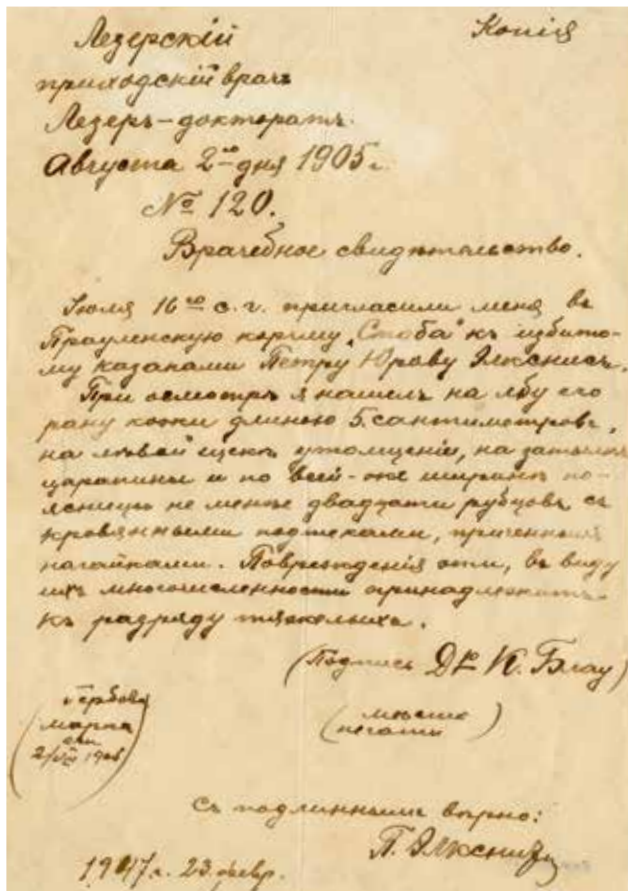 Лезерскій
Копія
приходскій врачъ
Лезеръ-докторатъ.
Августа 2го дня 1905 г.
№ 120.
Врачебное свидѣтельство.
Іюля 16го с. г. пригласили меня въ
Прауленскую корчму „Стоба" къ избито-
му казаками Петру Юрову Элкснисъ.
При осмотрѣ я нашелъ на лбу его
рану кожи длиною 5 сантиметровъ,
на лѣвой щекѣ утолщеніе, на затылкѣ
царапины и по всей-же ширинѣ по-
ясницы не менѣе двадцати рубцовъ съ
кровянными подтеками,
нагайками. Поврежденія эти, въ виду
ихъ многочисленности принадлежатъ
къ разряду тяжелыхъ.
(Подпись Dr К. Блау)
Гербовая
марка
2/VIII 1905
(мѣсто
печати)
Съ подлиннымъ вѣрно:
П. Элкснис
1947 г. 23. февр.